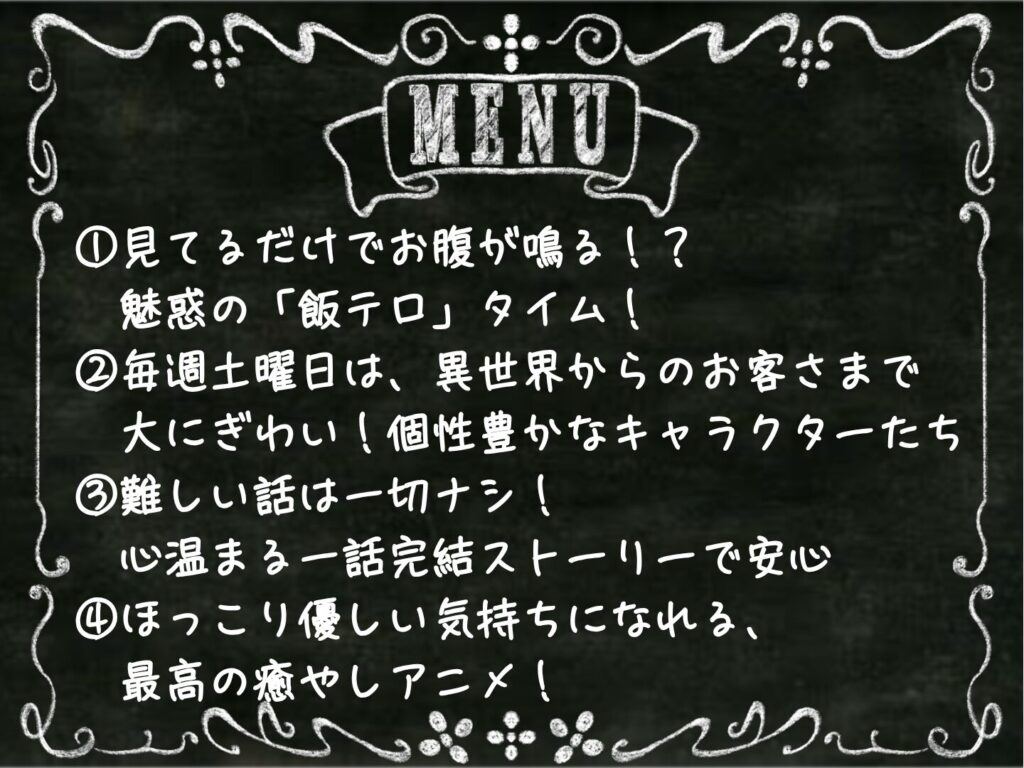 MENU
①見てるだけでお腹が鳴る！？
魅惑の「飯テロ」タイム！
②毎週土曜日は、異世界からのお客さまで
大にぎわい！個性豊かなキャラクターたち
③難しい話は一切ナシ！
心温まる一話完結ストーリーで安心
④ほっこり優しい気持ちになれる、
最高の癒やしアニメ！